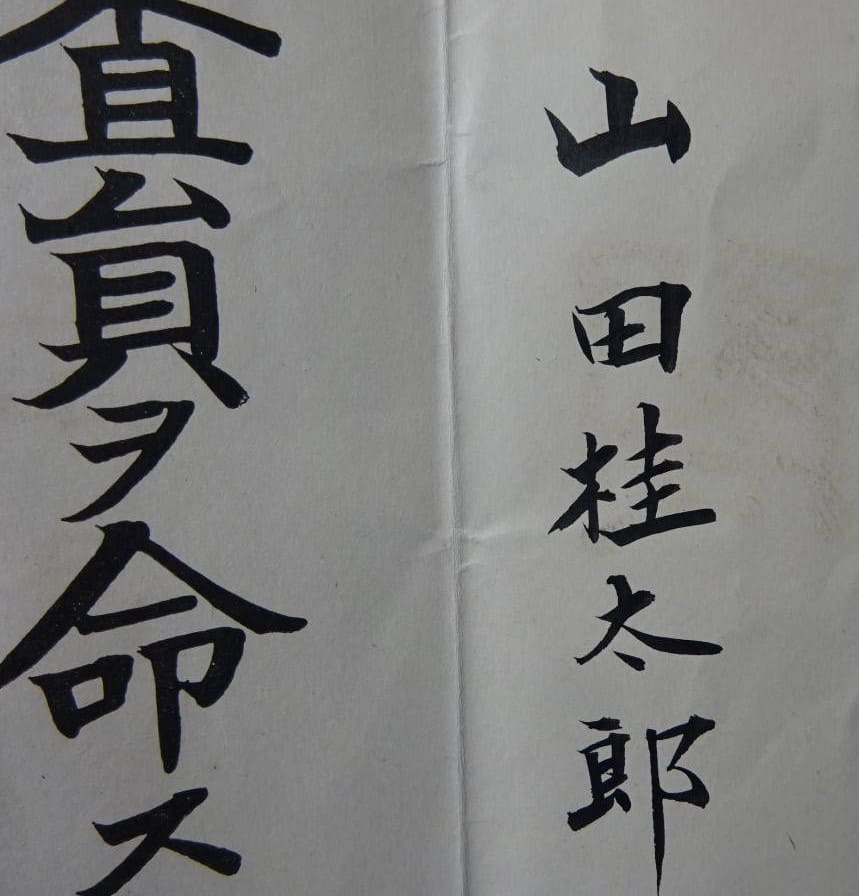 山田桂太郎
査員ヲ命ス